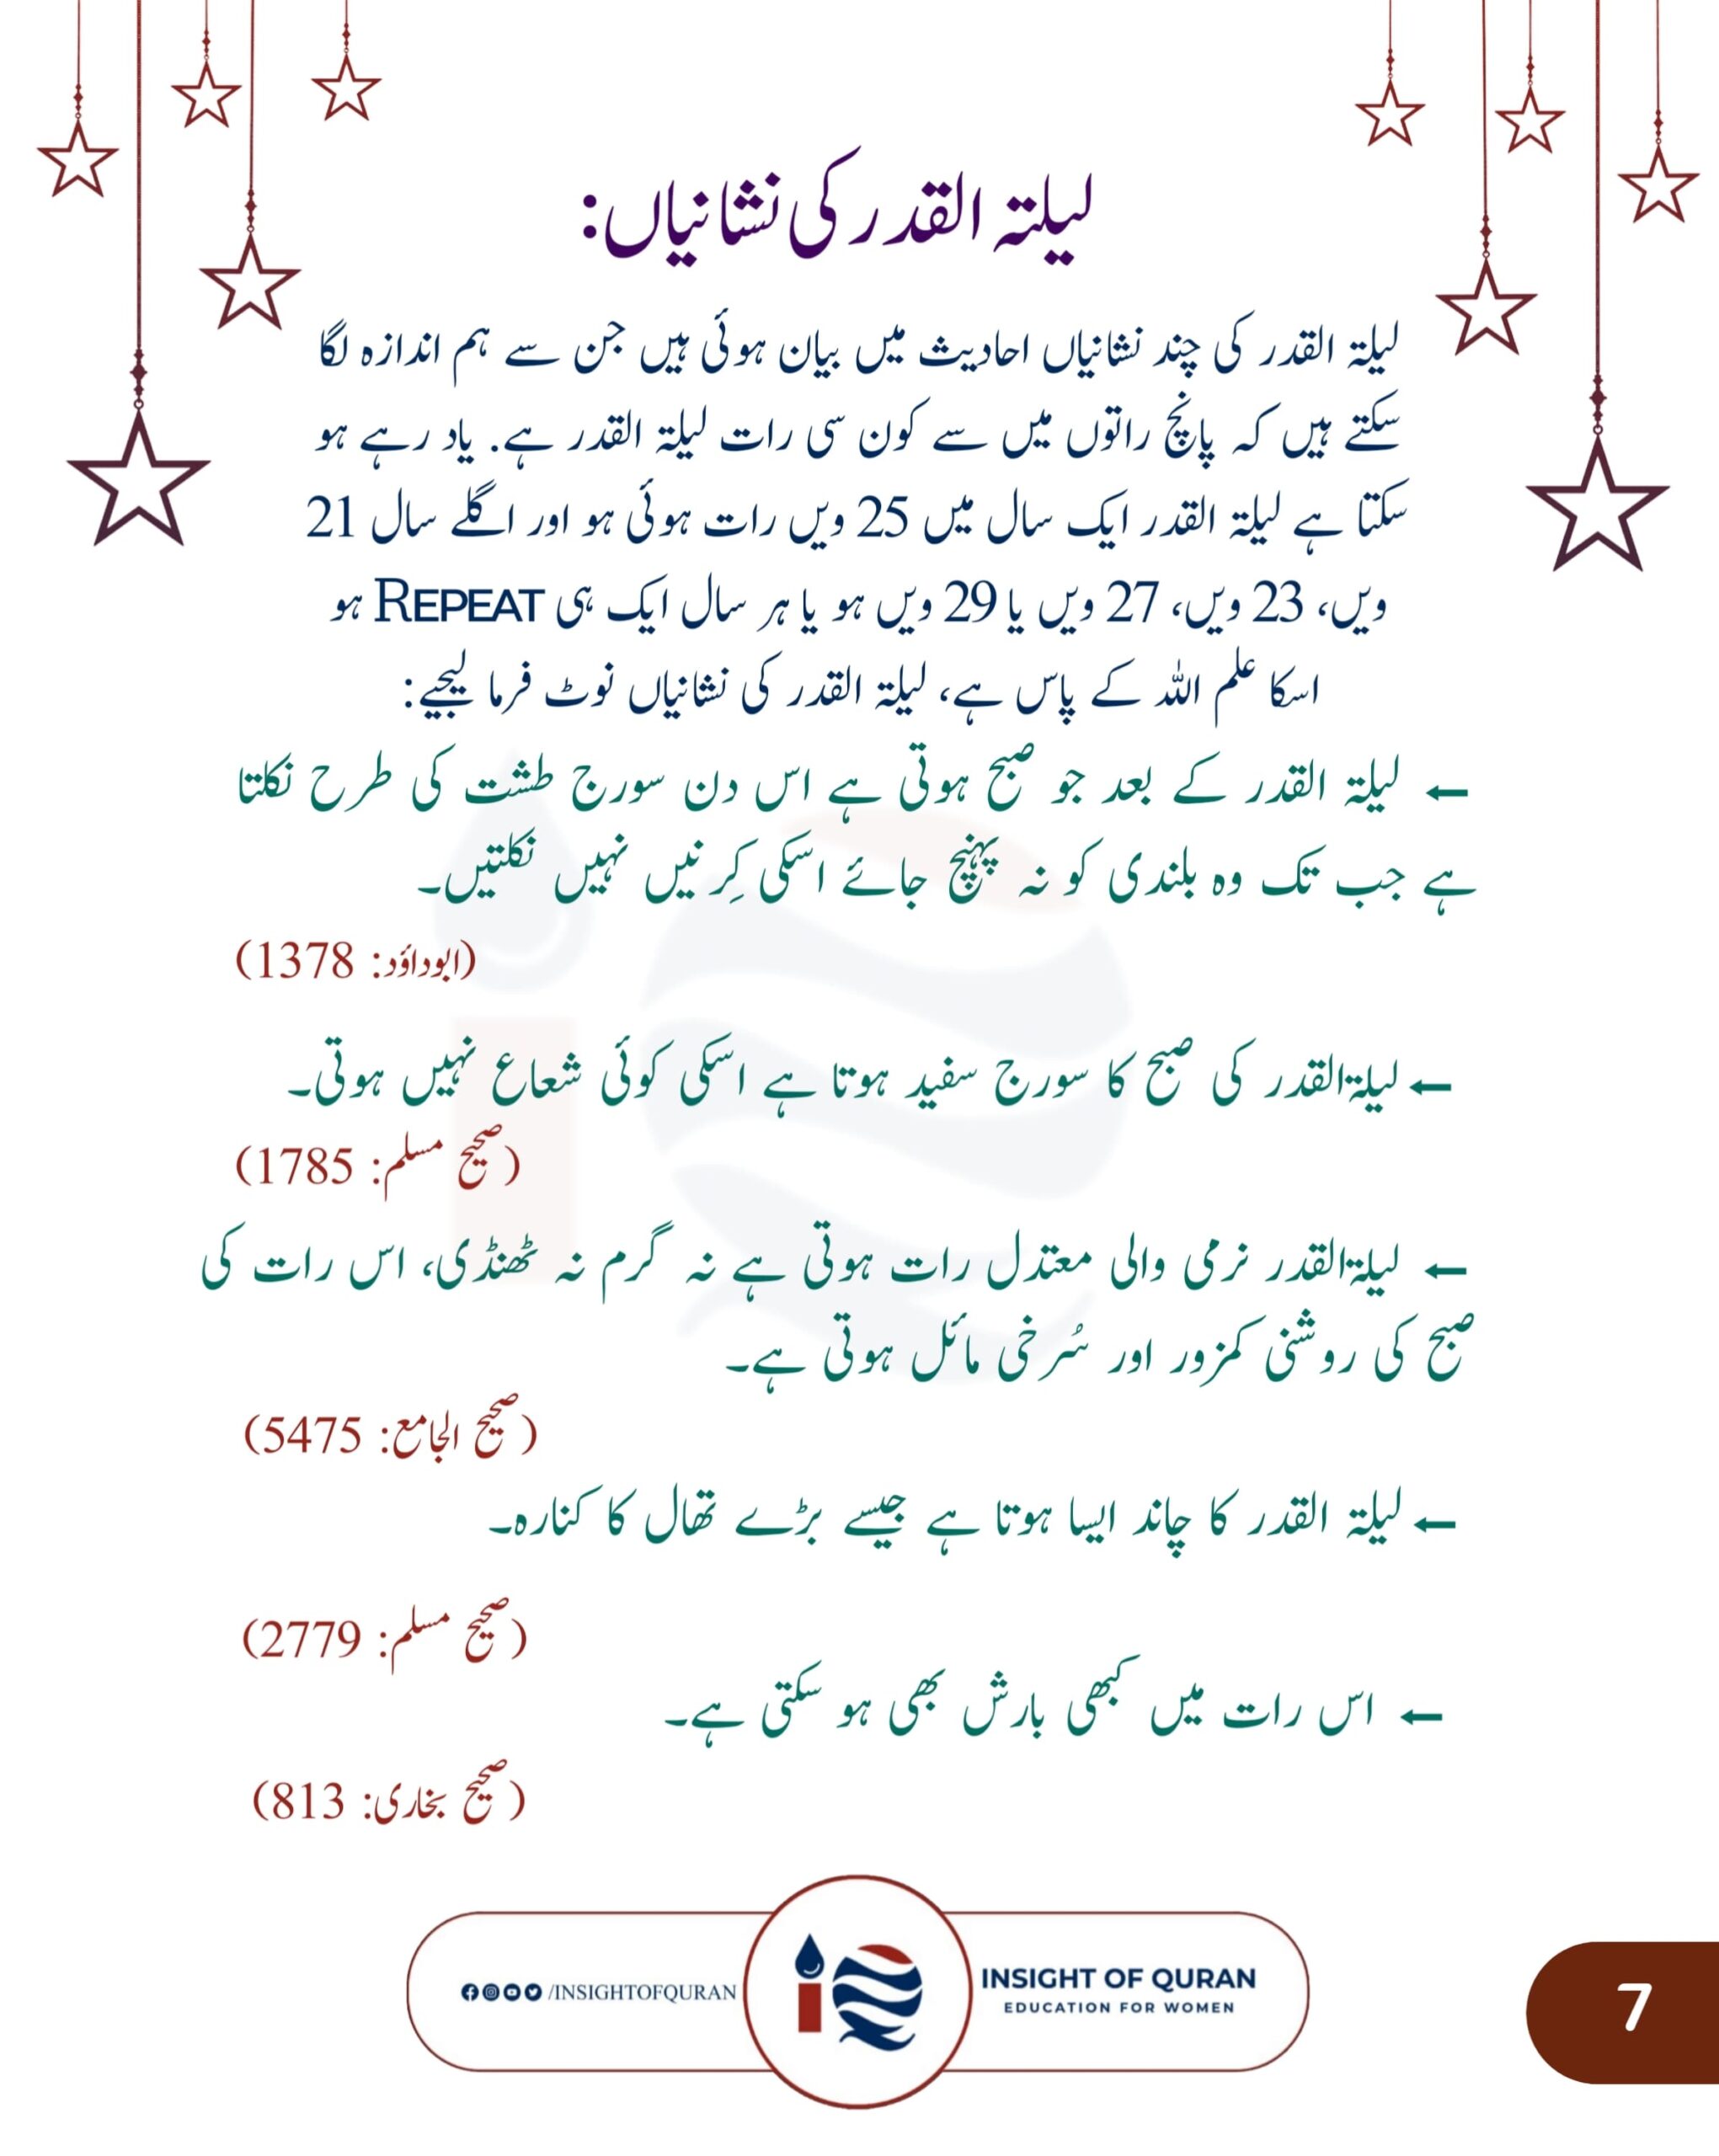 لیلتہ القدر کی نشانیاں:
لیلۃ القدر کی چند نشانیاں احادیث میں بیان ہوئی ہیں جن سے ہم اندازہ لگا
سکتے ہیں کہ پانچ راتوں میں سے کون سی رات لیلۃ القدر ہے. یاد رہے ہو
سکتا ہے لیلۃ القدر ایک سال میں 25 ویں رات ہوئی ہو اور اگلے سال 21
ویں، 23 ویں، 27 ویں یا 29 ویں ہو یا ہر سال ایک ہی REPEAT ہو
اسکا علم اللہ کے پاس ہے، لیلۃ القدر کی نشانیاں نوٹ فرما لیجیے:
← لیلۃ القدر کے بعد جو صبح ہوتی ہے اس دن سورج طشت کی طرح نکلتا
ہے جب تک وہ بلندی کو نہ پہنچ جائے اسکی کِرنیں نہیں نکلتیں۔
(ابوداؤد: 1378)
← لیلۃالقدر کی صبح کا سورج سفید ہوتا ہے اسکی کوئی شعاع نہیں ہوتی۔
(صحیح مسلم: 1785)
← لیلۃالقدر نرمی والی معتدل رات ہوتی ہے نہ گرم نہ ٹھنڈی، اس رات کی
صبح کی روشنی کمزور اور سُرخی مائل ہوتی ہے۔
(صحیح الجامع: 5475)
← لیلۃ القدر کا چاند ایسا ہوتا ہے جیسے بڑے تھال کا کنارہ۔
(صحیح مسلم: 2779)
← اس رات میں کبھی بارش بھی ہو سکتی ہے۔
(صحیح بخاری: 813)
/INSIGHTOFQURAN
INSIGHT OF QURAN
EDUCATION FOR WOMEN
7